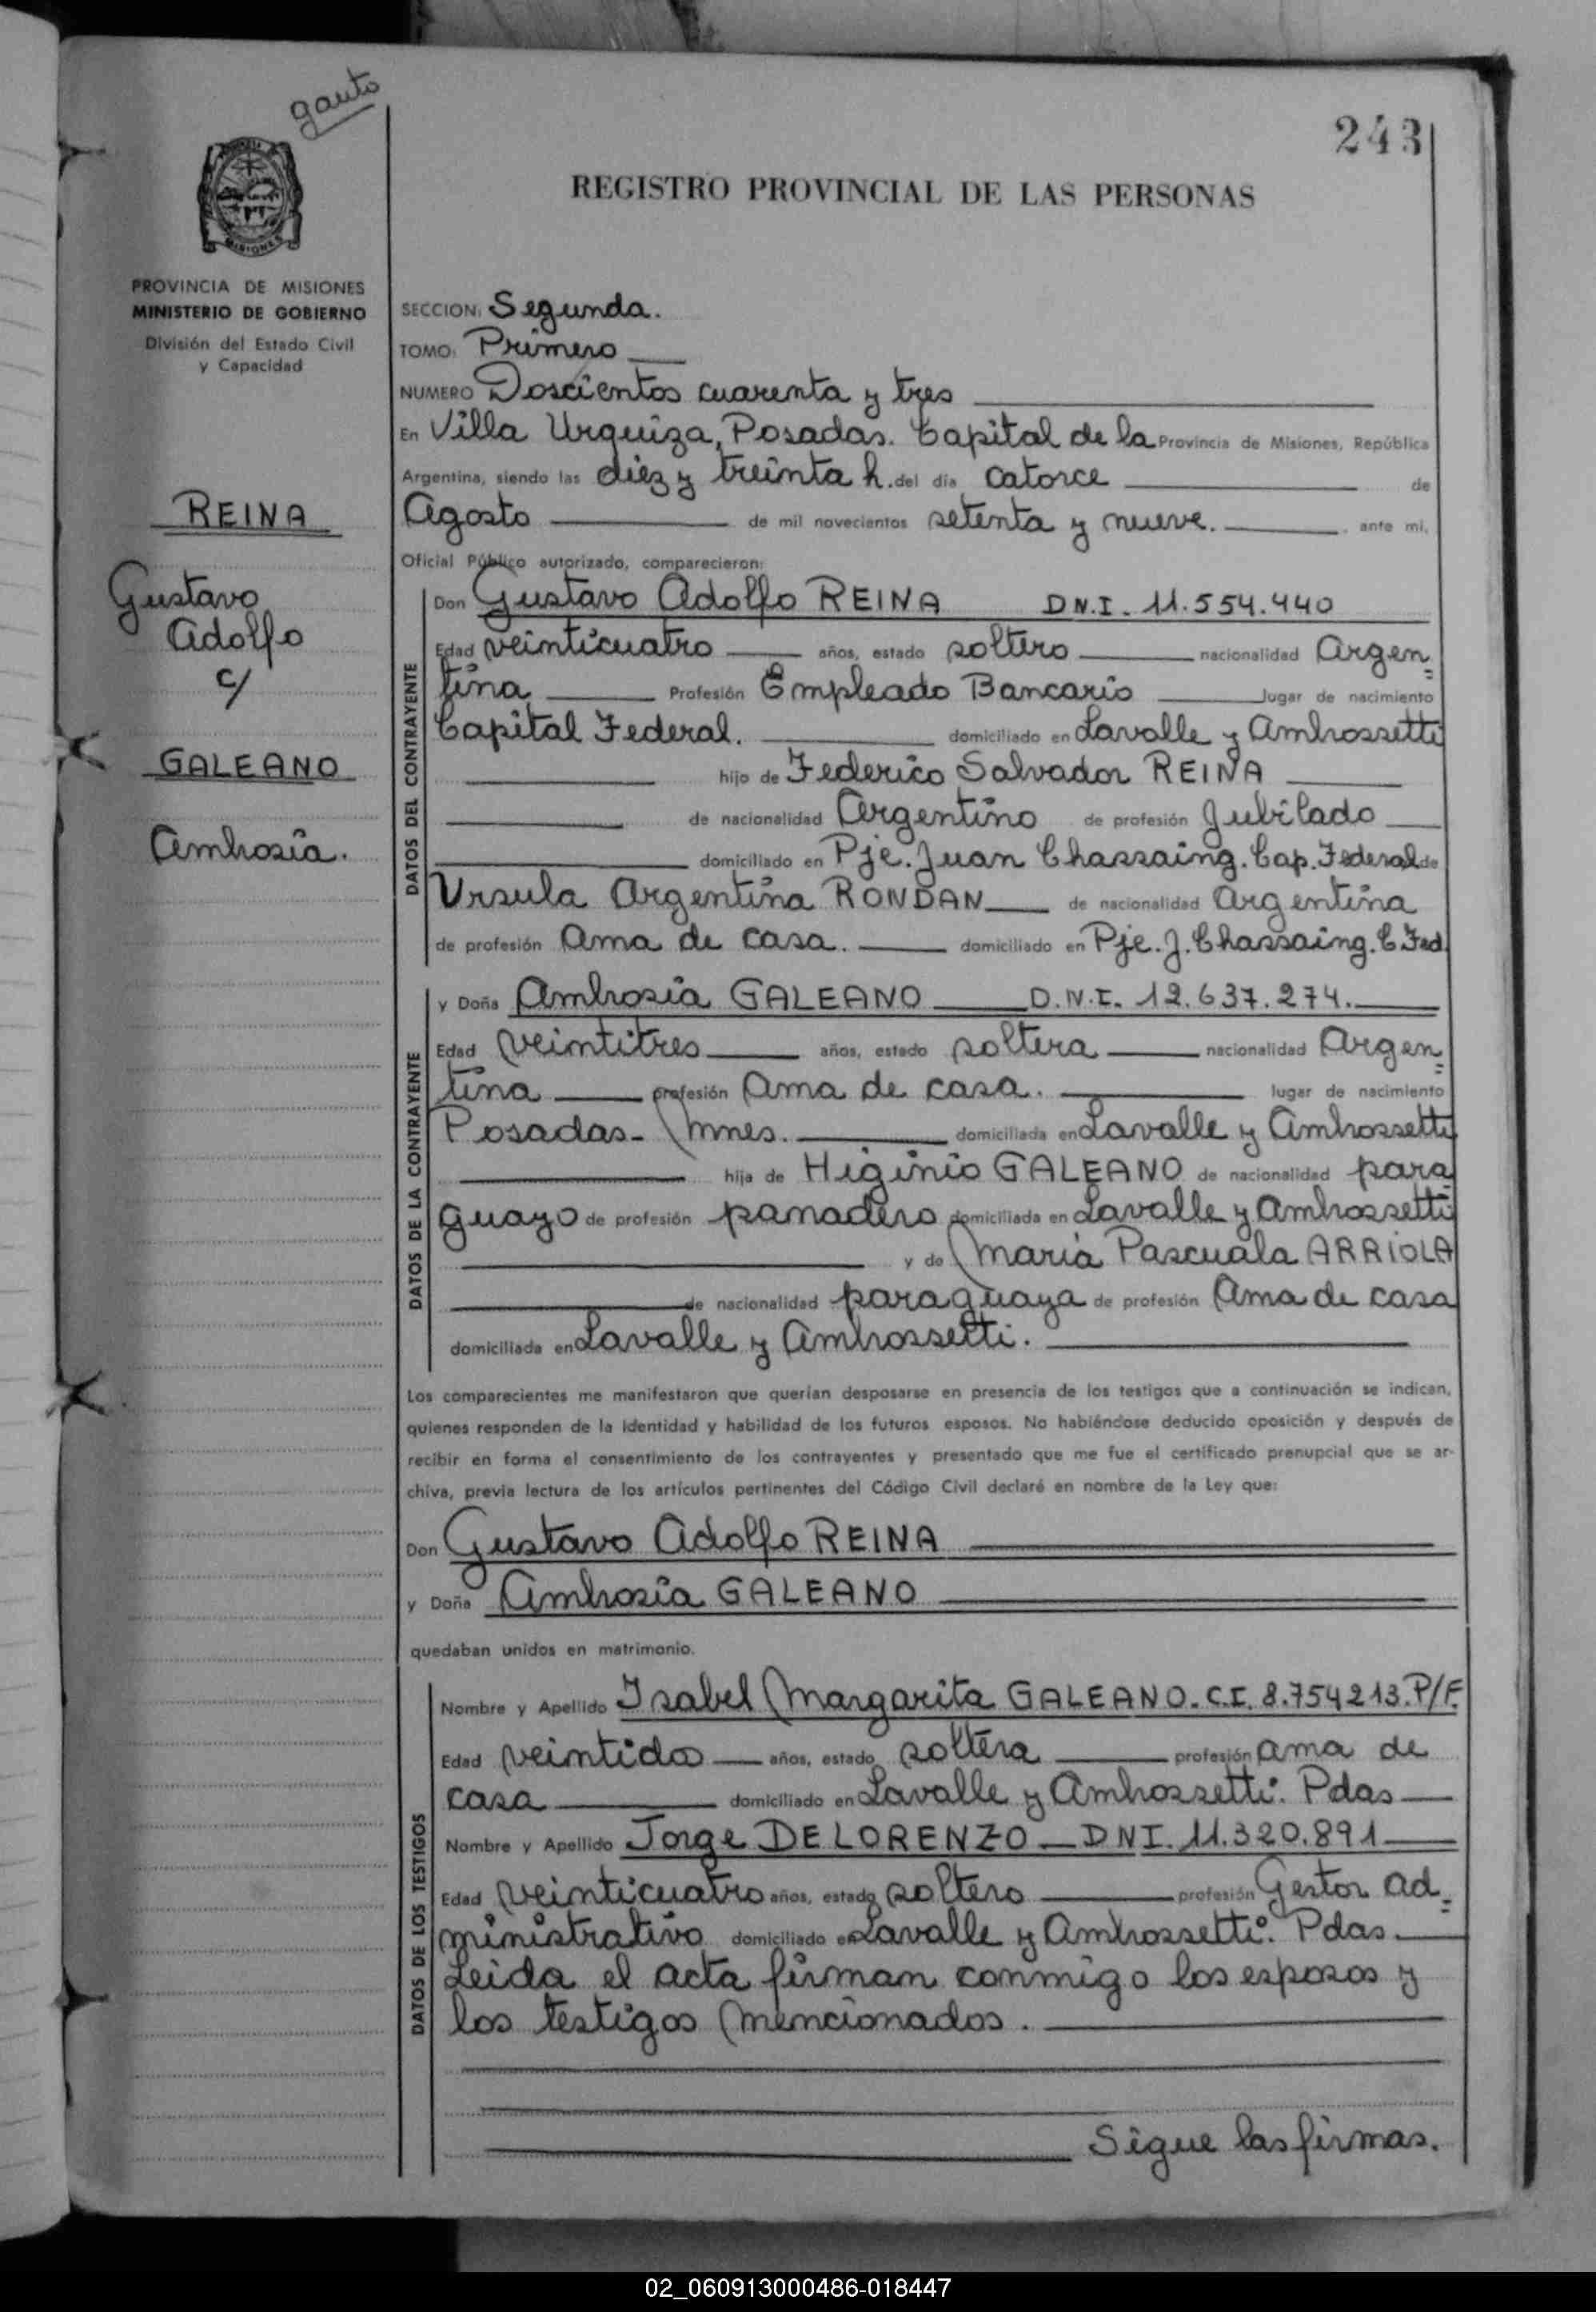 gauto
243
REGISTRO PROVINCIAL DE LAS PERSONAS
MISIONES
PROVINCIA DE MISIONES
MINISTERIO DE GOBIERNO
División del Estado Civil
y Capacidad
REINA
Gustavo
Adolfo
c/
GALEANO
Ambrosia.
SECCION: Segunda.
TOMO: Primero
NUMERO Doscientos cuarenta y tres
En Villa Urquiza, Posadas. Capital de la Provincia de Misiones, República
Argentina, siendo las diez y treinta h. del día catorce de
Agosto de mil novecientos setenta y nueve. ante mi,
Oficial Público autorizado, comparecieron:
DATOS DEL CONTRAYENTE
Don Gustavo Adolfo REINA D.N.I. 11.554.440
Edad veinticuatro años, estado soltero nacionalidad Argen=
tina Profesión Empleado Bancario lugar de nacimiento
Capital Federal. domiciliado en Lavalle y Ambrossetti
hijo de Federico Salvador REINA
de nacionalidad Argentino de profesión Jubilado
domiciliado en Pje. Juan Chassaing. Cap. Federal de
Ursula Argentina RONDAN de nacionalidad Argentina
de profesión Ama de casa. domiciliado en Pje. J. Chassaing. C Fed.
DATOS DE LA CONTRAYENTE
y Doña Ambrosia GALEANO D.N.I. 12.637.274.
Edad veintitres años, estado soltera nacionalidad Argen=
tina profesión Ama de casa. lugar de nacimiento
Posadas- Mnes. domiciliada en Lavalle y Ambrossetti
hija de Higinio GALEANO de nacionalidad para
guayo de profesión panadero domiciliada en Lavalle y Ambrossetti
y de Maria Pascuala ARRIOLA
de nacionalidad paraguaya de profesión Ama de casa
domiciliada en Lavalle y Ambrossetti.
Los comparecientes me manifestaron que querían desposarse en presencia de los testigos que a continuación se indican,
quienes responden de la identidad y habilidad de los futuros esposos. No habiéndose deducido oposición y después de
recibir en forma el consentimiento de los contrayentes y presentado que me fue el certificado prenupcial que se ar-
chiva, previa lectura de los artículos pertinentes del Código Civil declaré en nombre de la Ley que:
Don Gustavo Adolfo REINA
y Doña Ambrosia GALEANO
quedaban unidos en matrimonio.
DATOS DE LOS TESTIGOS
Nombre y Apellido Isabel Margarita GALEANO. C.I. 8.754213.P/F.
Edad veintidos años, estado soltera profesión ama de
casa domiciliado en Lavalle y Ambrossetti. Pdas
Nombre y Apellido Jorge DE LORENZO DNI. 11.320.891
Edad veinticuatro años, estado soltero profesión Gestor ad=
ministrativo domiciliado en Lavalle y Ambrossetti. Pdas.
Leida el acta firman conmigo los esposos y
los testigos mencionados.
Sigue las firmas.
02_060913000486-018447